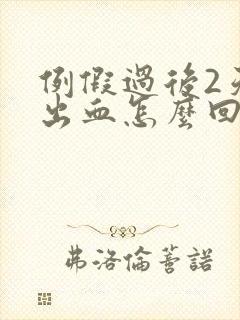 例假過後2天
出血怎麼回
弗洛倫蒈諾